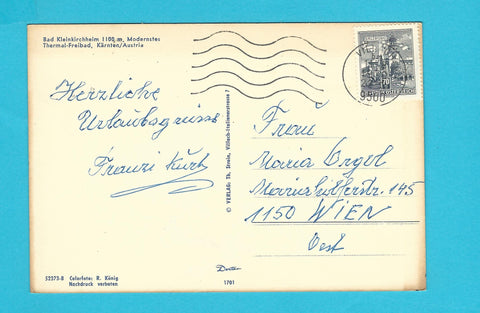 Bad Kleinkirchheim 1100 m, Modernstes
Thermal-Freibad, Kärnten/Austria
Herzliche
Urlaubsgrüsse
Franzi Kurt
© VERLAG: Th. Strein, Villach-Italienerstrasse 7
9500
70
Frau
Maria Orgol
Mariahilferstr. 145
1150 WIEN
Oest
52373-B Colorfoto: R. König
Nachdruck verboten
1701